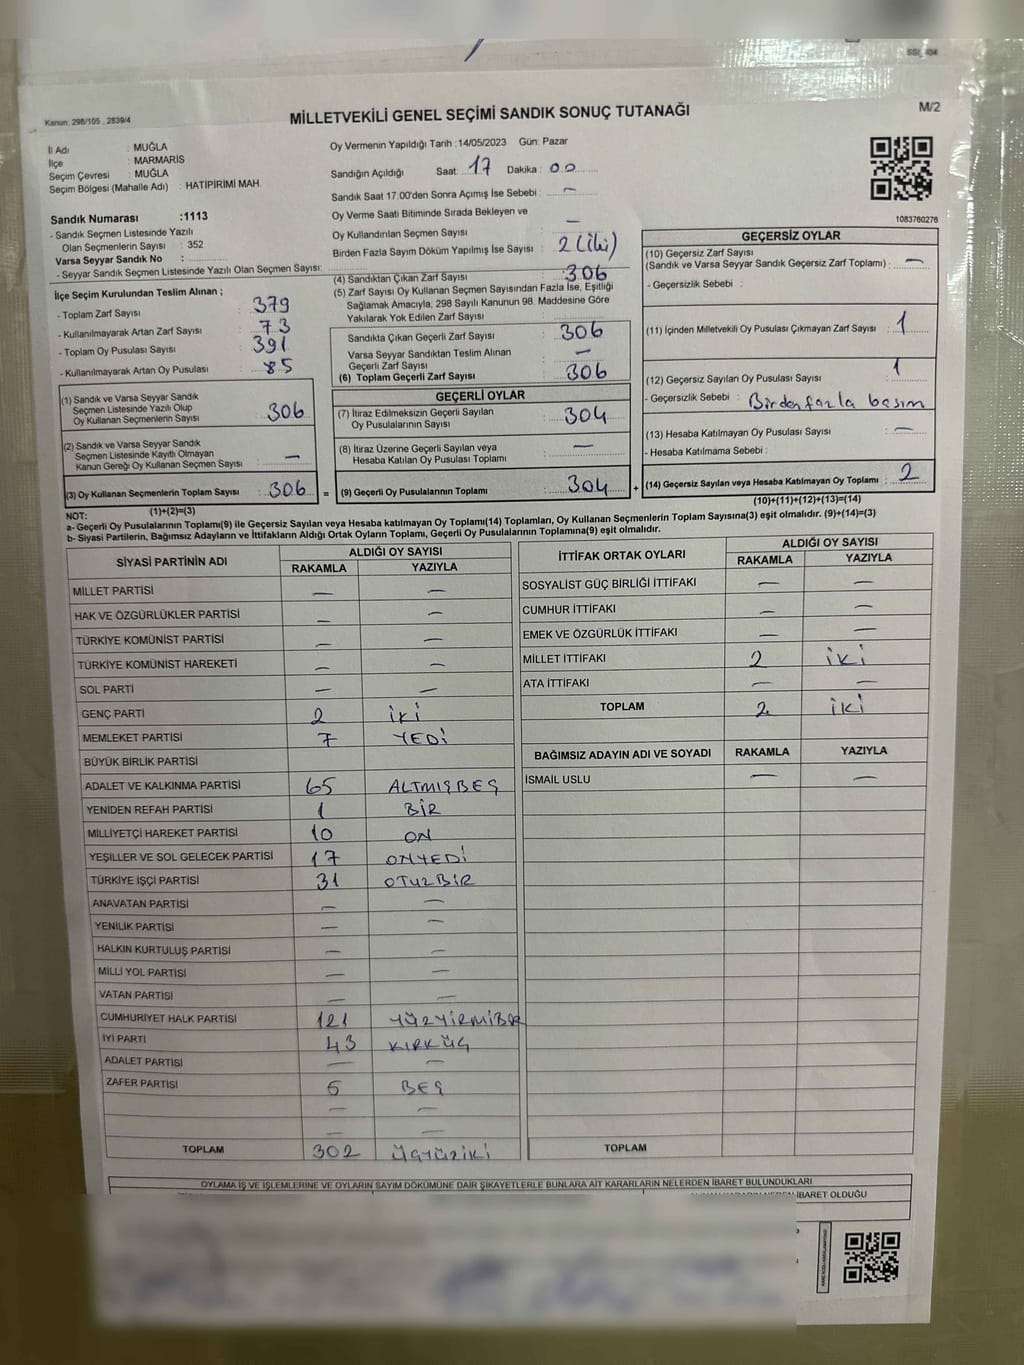 SSI_404
Kanun: 298/105 , 2839/4
MİLLETVEKİLİ GENEL SEÇİMİ SANDIK SONUÇ TUTANAĞI
M/2
İl Adı : MUĞLA
İlçe : MARMARİS
Seçim Çevresi : MUĞLA
Seçim Bölgesi (Mahalle Adı) : HATIPİRİMİ MAH.
Oy Vermenin Yapıldığı Tarih :14/05/2023 Gün: Pazar
Sandığın Açıldığı Saat: 17 Dakika : 00
Sandık Saat 17.00'den Sonra Açımış İse Sebebi : —
Oy Verme Saati Bitiminde Sırada Bekleyen ve
Oy Kullandırılan Seçmen Sayısı —
Birden Fazla Sayım Döküm Yapılmış İse Sayısı : 2 (iki)
1083760276
Sandık Numarası :1113
- Sandık Seçmen Listesinde Yazılı
Olan Seçmenlerin Sayısı : 352
Varsa Seyyar Sandık No :
- Seyyar Sandık Seçmen Listesinde Yazılı Olan Seçmen Sayısı:
İlçe Seçim Kurulundan Teslim Alınan ;
- Toplam Zarf Sayısı : 379
- Kullanılmayarak Artan Zarf Sayısı : 73
- Toplam Oy Pusulası Sayısı : 391
- Kullanılmayarak Artan Oy Pusulası : 85
(1) Sandık ve Varsa Seyyar Sandık
Seçmen Listesinde Yazılı Olup
Oy Kullanan Seçmenlerin Sayısı : 306
(2) Sandık ve Varsa Seyyar Sandık
Seçmen Listesinde Kayıtlı Olmayan
Kanun Gereği Oy Kullanan Seçmen Sayısı : —
(3) Oy Kullanan Seçmenlerin Toplam Sayısı : 306
(1)+(2)=(3)
(4) Sandıktan Çıkan Zarf Sayısı : 306
(5) Zarf Sayısı Oy Kullanan Seçmen Sayısından Fazla İse, Eşitliği
Sağlamak Amacıyla; 298 Sayılı Kanunun 98. Maddesine Göre
Yakılarak Yok Edilen Zarf Sayısı :
Sandıkta Çıkan Geçerli Zarf Sayısı : 306
Varsa Seyyar Sandıktan Teslim Alınan
Geçerli Zarf Sayısı : —
(6) Toplam Geçerli Zarf Sayısı : 306
GEÇERLİ OYLAR
(7) İtiraz Edilmeksizin Geçerli Sayılan
Oy Pusulalarının Sayısı : 304
(8) İtiraz Üzerine Geçerli Sayılan veya
Hesaba Katılan Oy Pusulası Toplamı : —
= (9) Geçerli Oy Pusulalarının Toplamı : 304 +
GEÇERSİZ OYLAR
(10) Geçersiz Zarf Sayısı
(Sandık ve Varsa Seyyar Sandık Geçersiz Zarf Toplamı) : —
- Geçersizlik Sebebi :
(11) İçinden Milletvekili Oy Pusulası Çıkmayan Zarf Sayısı : 1
(12) Geçersiz Sayılan Oy Pusulası Sayısı : 1
- Geçersizlik Sebebi : Birden fazla basım
(13) Hesaba Katılmayan Oy Pusulası Sayısı : —
- Hesaba Katılmama Sebebi :
(14) Geçersiz Sayılan veya Hesaba Katılmayan Oy Toplamı : 2
(10)+(11)+(12)+(13)=(14)
NOT:
a- Geçerli Oy Pusulalarının Toplamı(9) ile Geçersiz Sayılan veya Hesaba katılmayan Oy Toplamı(14) Toplamları, Oy Kullanan Seçmenlerin Toplam Sayısına(3) eşit olmalıdır. (9)+(14)=(3)
b- Siyasi Partilerin, Bağımsız Adayların ve İttifakların Aldığı Ortak Oyların Toplamı, Geçerli Oy Pusulalarının Toplamına(9) eşit olmalıdır.
SİYASİ PARTİNİN ADI ALDIĞI OY SAYISI
RAKAMLA YAZIYLA
MİLLET PARTİSİ — —
HAK VE ÖZGÜRLÜKLER PARTİSİ — —
TÜRKİYE KOMÜNİST PARTİSİ — —
TÜRKİYE KOMÜNİST HAREKETİ — —
SOL PARTİ — —
GENÇ PARTİ 2 İKİ
MEMLEKET PARTİSİ 7 YEDİ
BÜYÜK BİRLİK PARTİSİ
ADALET VE KALKINMA PARTİSİ 65 ALTMIŞBEŞ
YENİDEN REFAH PARTİSİ 1 BİR
MİLLİYETÇİ HAREKET PARTİSİ 10 ON
YEŞİLLER VE SOL GELECEK PARTİSİ 17 ONYEDİ
TÜRKİYE İŞÇİ PARTİSİ 31 OTUZBİR
ANAVATAN PARTİSİ — —
YENİLİK PARTİSİ — —
HALKIN KURTULUŞ PARTİSİ — —
MİLLİ YOL PARTİSİ — —
VATAN PARTİSİ — —
CUMHURİYET HALK PARTİSİ 121 YÜZYİRMİBİR
İYİ PARTİ 43 KIRKÜÇ
ADALET PARTİSİ — —
ZAFER PARTİSİ 5 BEŞ
— —
— —
TOPLAM 302 ÜÇYÜZİKİ
İTTİFAK ORTAK OYLARI ALDIĞI OY SAYISI
RAKAMLA YAZIYLA
SOSYALİST GÜÇ BİRLİĞİ İTTİFAKI — —
CUMHUR İTTİFAKI — —
EMEK VE ÖZGÜRLÜK İTTİFAKI — —
MİLLET İTTİFAKI 2 İKİ
ATA İTTİFAKI — —
TOPLAM 2 İKİ
BAĞIMSIZ ADAYIN ADI VE SOYADI RAKAMLA YAZIYLA
İSMAİL USLU — —
TOPLAM
OYLAMA İŞ VE İŞLEMLERİNE VE OYLARIN SAYIM DÖKÜMÜNE DAİR ŞİKAYETLERLE BUNLARA AİT KARARLARIN NELERDEN İBARET BULUNDUKLARI
İBARET OLDUĞU